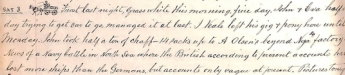 SAT 3 Frost last night, Grass white this morning, fine day, John & Eva half
day trying to get car to go managed it at last. J Neale left his gig & pony here until
Monday. John took half a ton of chaff - 14 sacks up to A Olsen's beyond factory
News of a Navy battle in North Sea where the British according to present accounts have
lost more ships than the Germans, but accounts only vague at present.